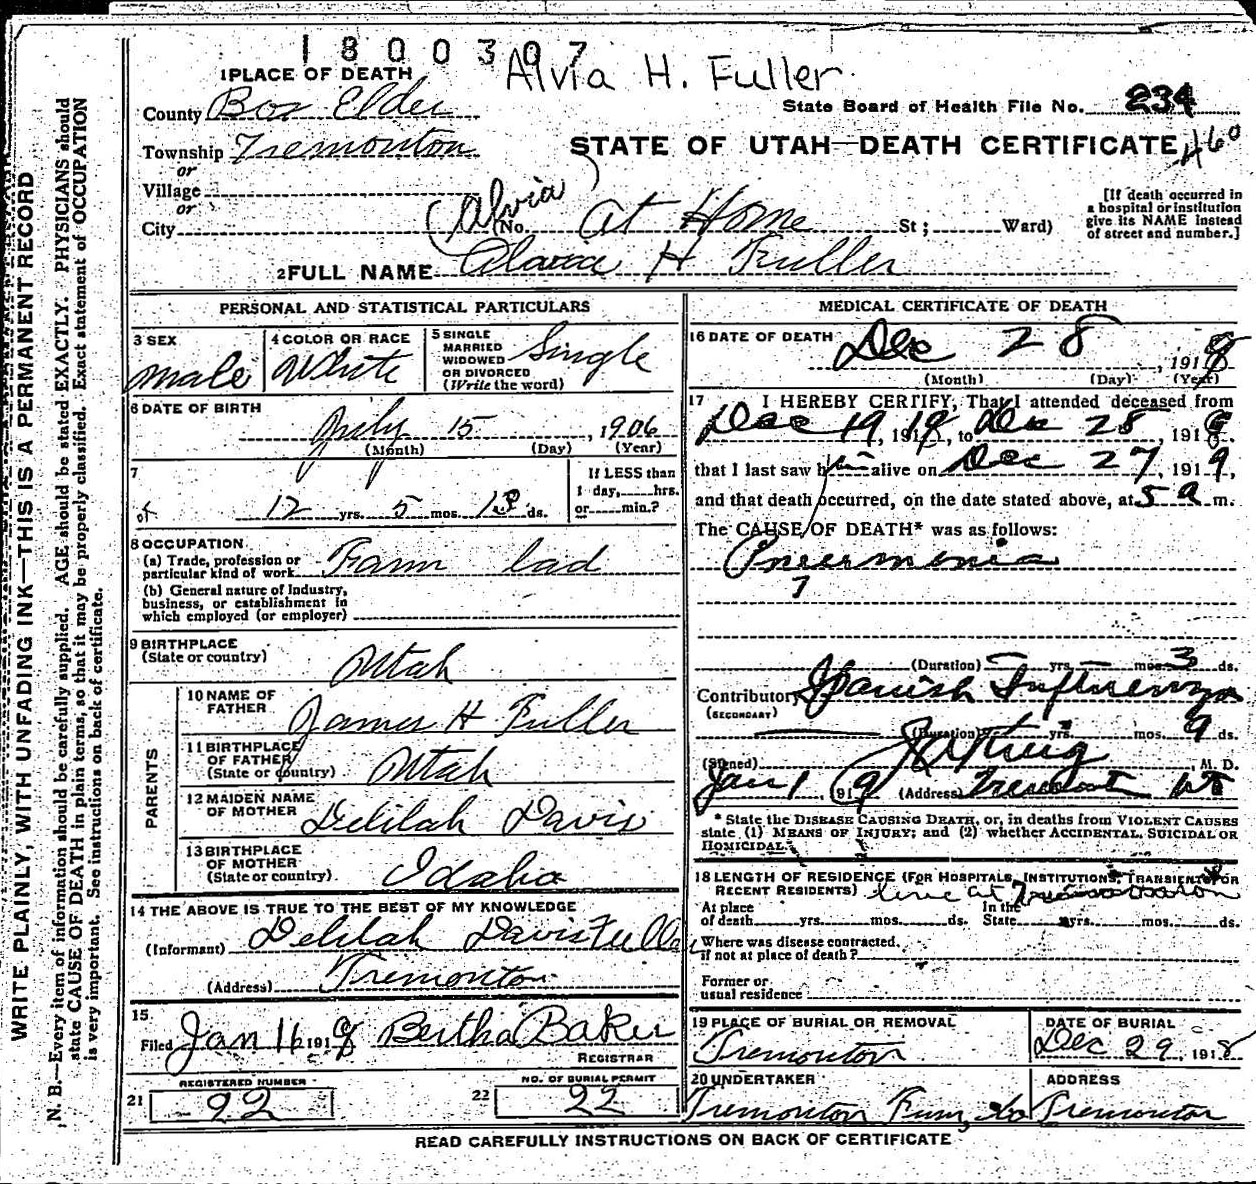 1800307
Alvia H. Fuller
1 PLACE OF DEATH
County Box Elder
State Board of Health File No. 234
Township Tremonton
STATE OF UTAH—DEATH CERTIFICATE
460
or
Village
or
City
(Alvia)
(No. At Home St; Ward)
[If death occurred in
a hospital or institution
give its NAME instead
of street and number.]
2 FULL NAME Clarice H Fuller
WRITE PLAINLY, WITH UNFADING INK—THIS IS A PERMANENT RECORD
N. B.—Every item of information should be carefully supplied. AGE should be stated EXACTLY. PHYSICIANS should
state CAUSE OF DEATH in plain terms, so that it may be properly classified. Exact statement of OCCUPATION
is very important. See instructions on back of certificate.
PERSONAL AND STATISTICAL PARTICULARS
3 SEX
male
4 COLOR OR RACE
White
5 SINGLE
MARRIED
WIDOWED
OR DIVORCED
(Write the word)
Single
6 DATE OF BIRTH
July 15, 1906
(Month) (Day) (Year)
7
12 yrs. 5 mos. 13 ds.
If LESS than
1 day,......hrs.
or......min.?
8 OCCUPATION
(a) Trade, profession or
particular kind of work Farm lad
(b) General nature of Industry,
business, or establishment in
which employed (or employer)
9 BIRTHPLACE
(State or country) Utah
PARENTS
10 NAME OF
FATHER James H Fuller
11 BIRTHPLACE
OF FATHER
(State or country) Utah
12 MAIDEN NAME
OF MOTHER Delilah Davis
13 BIRTHPLACE
OF MOTHER
(State or country) Idaho
14 THE ABOVE IS TRUE TO THE BEST OF MY KNOWLEDGE
(Informant) Delilah Davis Fuller
(Address) Tremonton
15
Filed Jan 16 1919 Bertha Baker
REGISTRAR
21 REGISTERED NUMBER 22
22 NO. OF BURIAL PERMIT 22
MEDICAL CERTIFICATE OF DEATH
16 DATE OF DEATH Dec 28, 1918
(Month) (Day) (Year)
17 I HEREBY CERTIFY, That I attended deceased from
Dec 19, 1918, to Dec 28, 1918,
that I last saw him alive on Dec 27, 1919,
and that death occurred, on the date stated above, at 5 a m.
The CAUSE OF DEATH* was as follows:
Pneumonia
7
(Duration) — yrs. — mos. 3 ds.
Contributory Spanish Influenza
(SECONDARY)
(Duration) yrs. mos. 9 ds.
(Signed) M. D.
Jan 1, 1919 (Address) Tremont Ut
* State the DISEASE CAUSING DEATH, or, in deaths from VIOLENT CAUSES
state (1) MEANS OF INJURY; and (2) whether ACCIDENTAL, SUICIDAL OR
HOMICIDAL.
18 LENGTH OF RESIDENCE (FOR HOSPITALS, INSTITUTIONS, TRANSIENTS OR
RECENT RESIDENTS) live at Tremonton
At place
of death......yrs......mos......ds.
In the
State......yrs......mos......ds.
Where was disease contracted,
if not at place of death?
Former or
usual residence
19 PLACE OF BURIAL OR REMOVAL
Tremonton
DATE OF BURIAL
Dec 29, 1918
20 UNDERTAKER
Tremonton Furn, Co
ADDRESS
Tremonton
READ CAREFULLY INSTRUCTIONS ON BACK OF CERTIFICATE